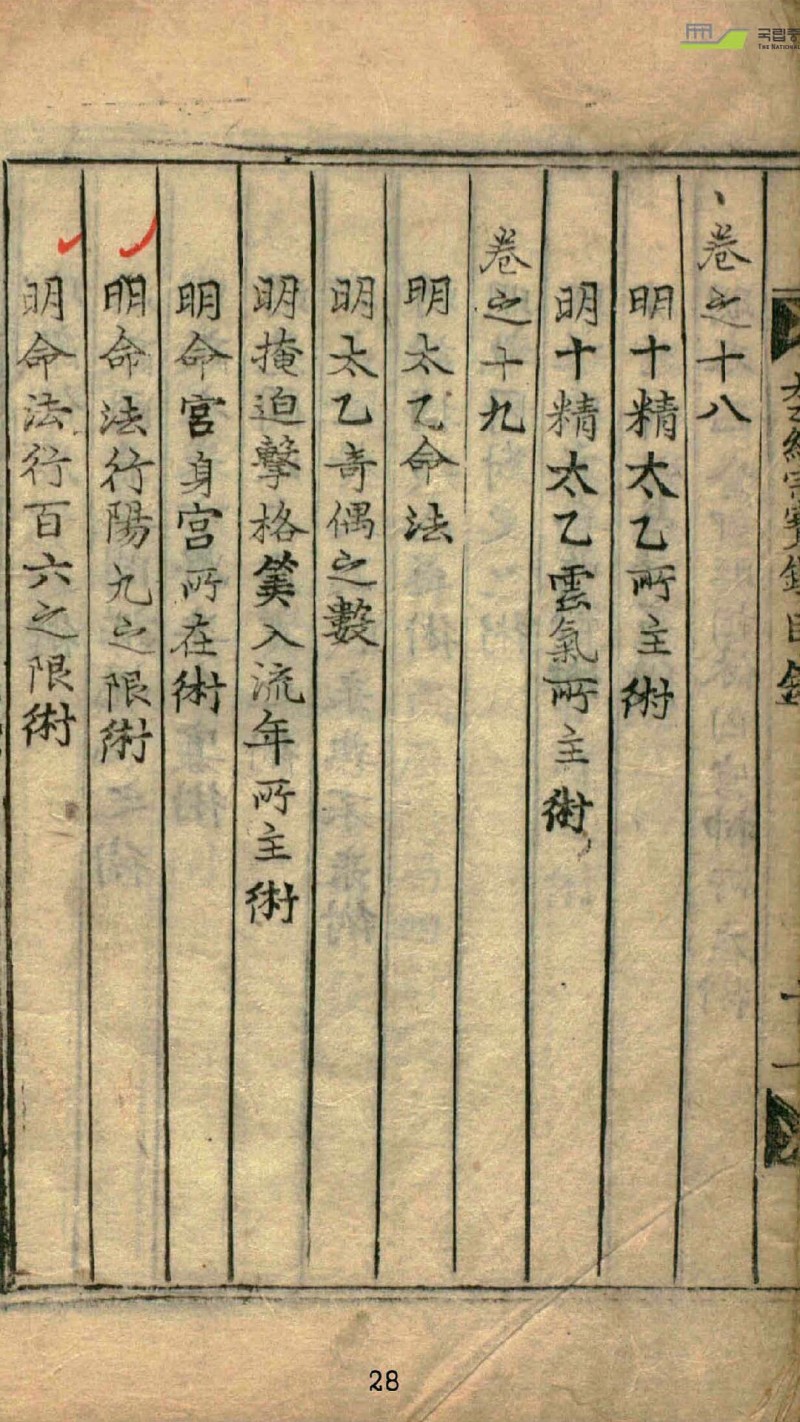 국립중
THE NATIONAL
卷之十八
明十精太乙所主術
明十精太乙雲氣所主術
卷之十九
明太乙命法
明太乙竒偶之數
明掩迫擊格筭入流年所主術
明命宮身宮所在術
明命法行陽九之限術
明命法行百六之限術
28